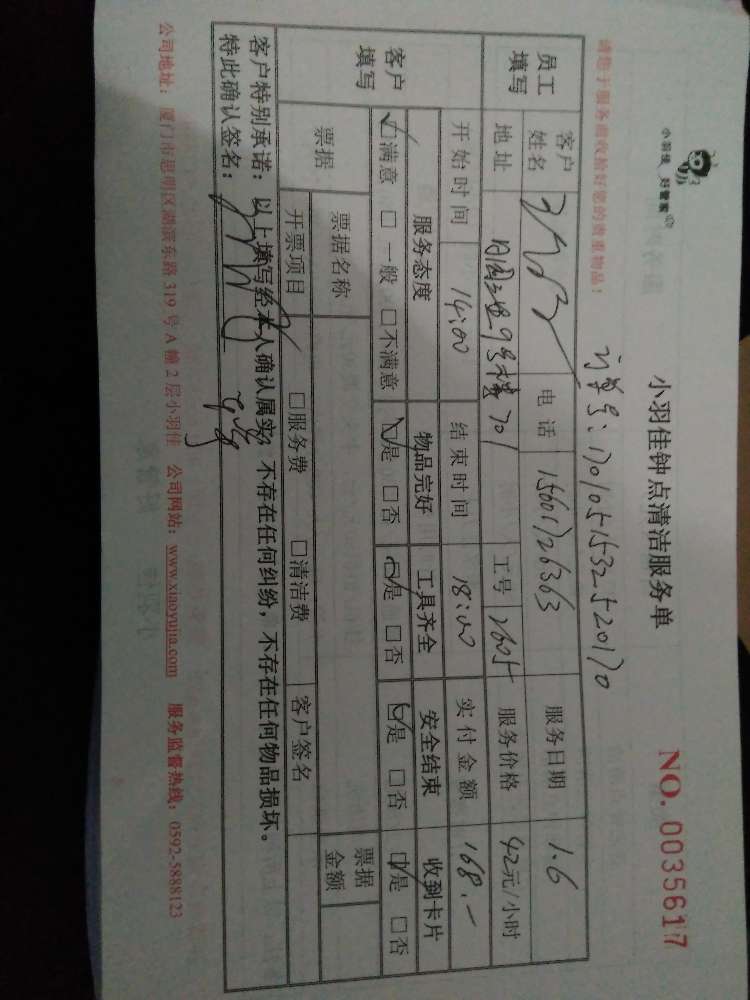 小羽佳 好管家
小羽佳钟点清洁服务单
NO. 0035617
请您于服务前收拾好您的贵重物品!
订单号: 17010515325520170
员工填写
客户姓名 电话 15601726363 服务日期 1.6
地址 9号楼701 工号 2605 服务价格 42元/小时
开始时间 14:00 结束时间 18:00 实付金额 168.-
客户填写
服务态度 物品完好 工具齐全 安全结束 收到卡片
☑满意 □一般 □不满意 ☑是 □否 ☑是 □否 ☑是 □否 ☑是 □否
票据 票据名称 票据金额
开票项目 □服务费 □清洁费 客户签名
客户特别承诺:以上填写经本人确认属实,不存在任何纠纷,不存在任何物品损坏。
特此确认签名:
公司地址:厦门市思明区湖滨东路319号A幢2层小羽佳 公司网站:www.xiaoyujia.com 服务监督热线:0592-5888123